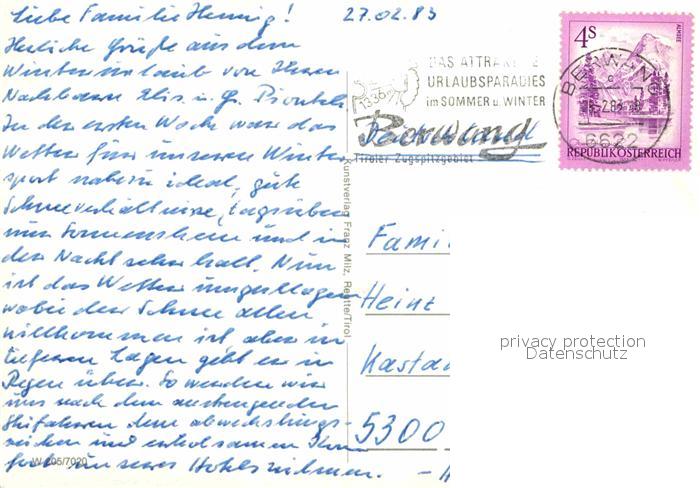 Liebe Familie Hennig!
27.02.83
Herliche Grüße aus dem
Winterurlaub von Ihren
Nachbarn Elis u. G.
In der ersten Woche war das
Wetter für unseren Winter
sport nahezu ideal, gute
Schneeverhältnisse, tagsüber
nur Sonnenschein und in
der Nacht sehr kalt. Nun
ist das Wetter umgeschlagen
wobei der Schnee allen
willkommen ist, aber in
tieferen Lagen geht er in
Regen über. So werden wir
uns nach dem anstrengenden
Skifahren dem abwechslungs-
reichen und erholsamen
unseres Hotels widmen.
W 205/7020
Kunstverlag Franz Milz, Reutte/Tirol
DAS ATTRAKTIVE
URLAUBSPARADIES
im SOMMER u. WINTER
1336m
Berwang
Tiroler Zugspitzgebiet
4S
ALMSEE
BERWANG
2.83
6622
REPUBLIK ÖSTERREICH
Fami
Heinz
Kasta
5300
privacy protection
Datenschutz